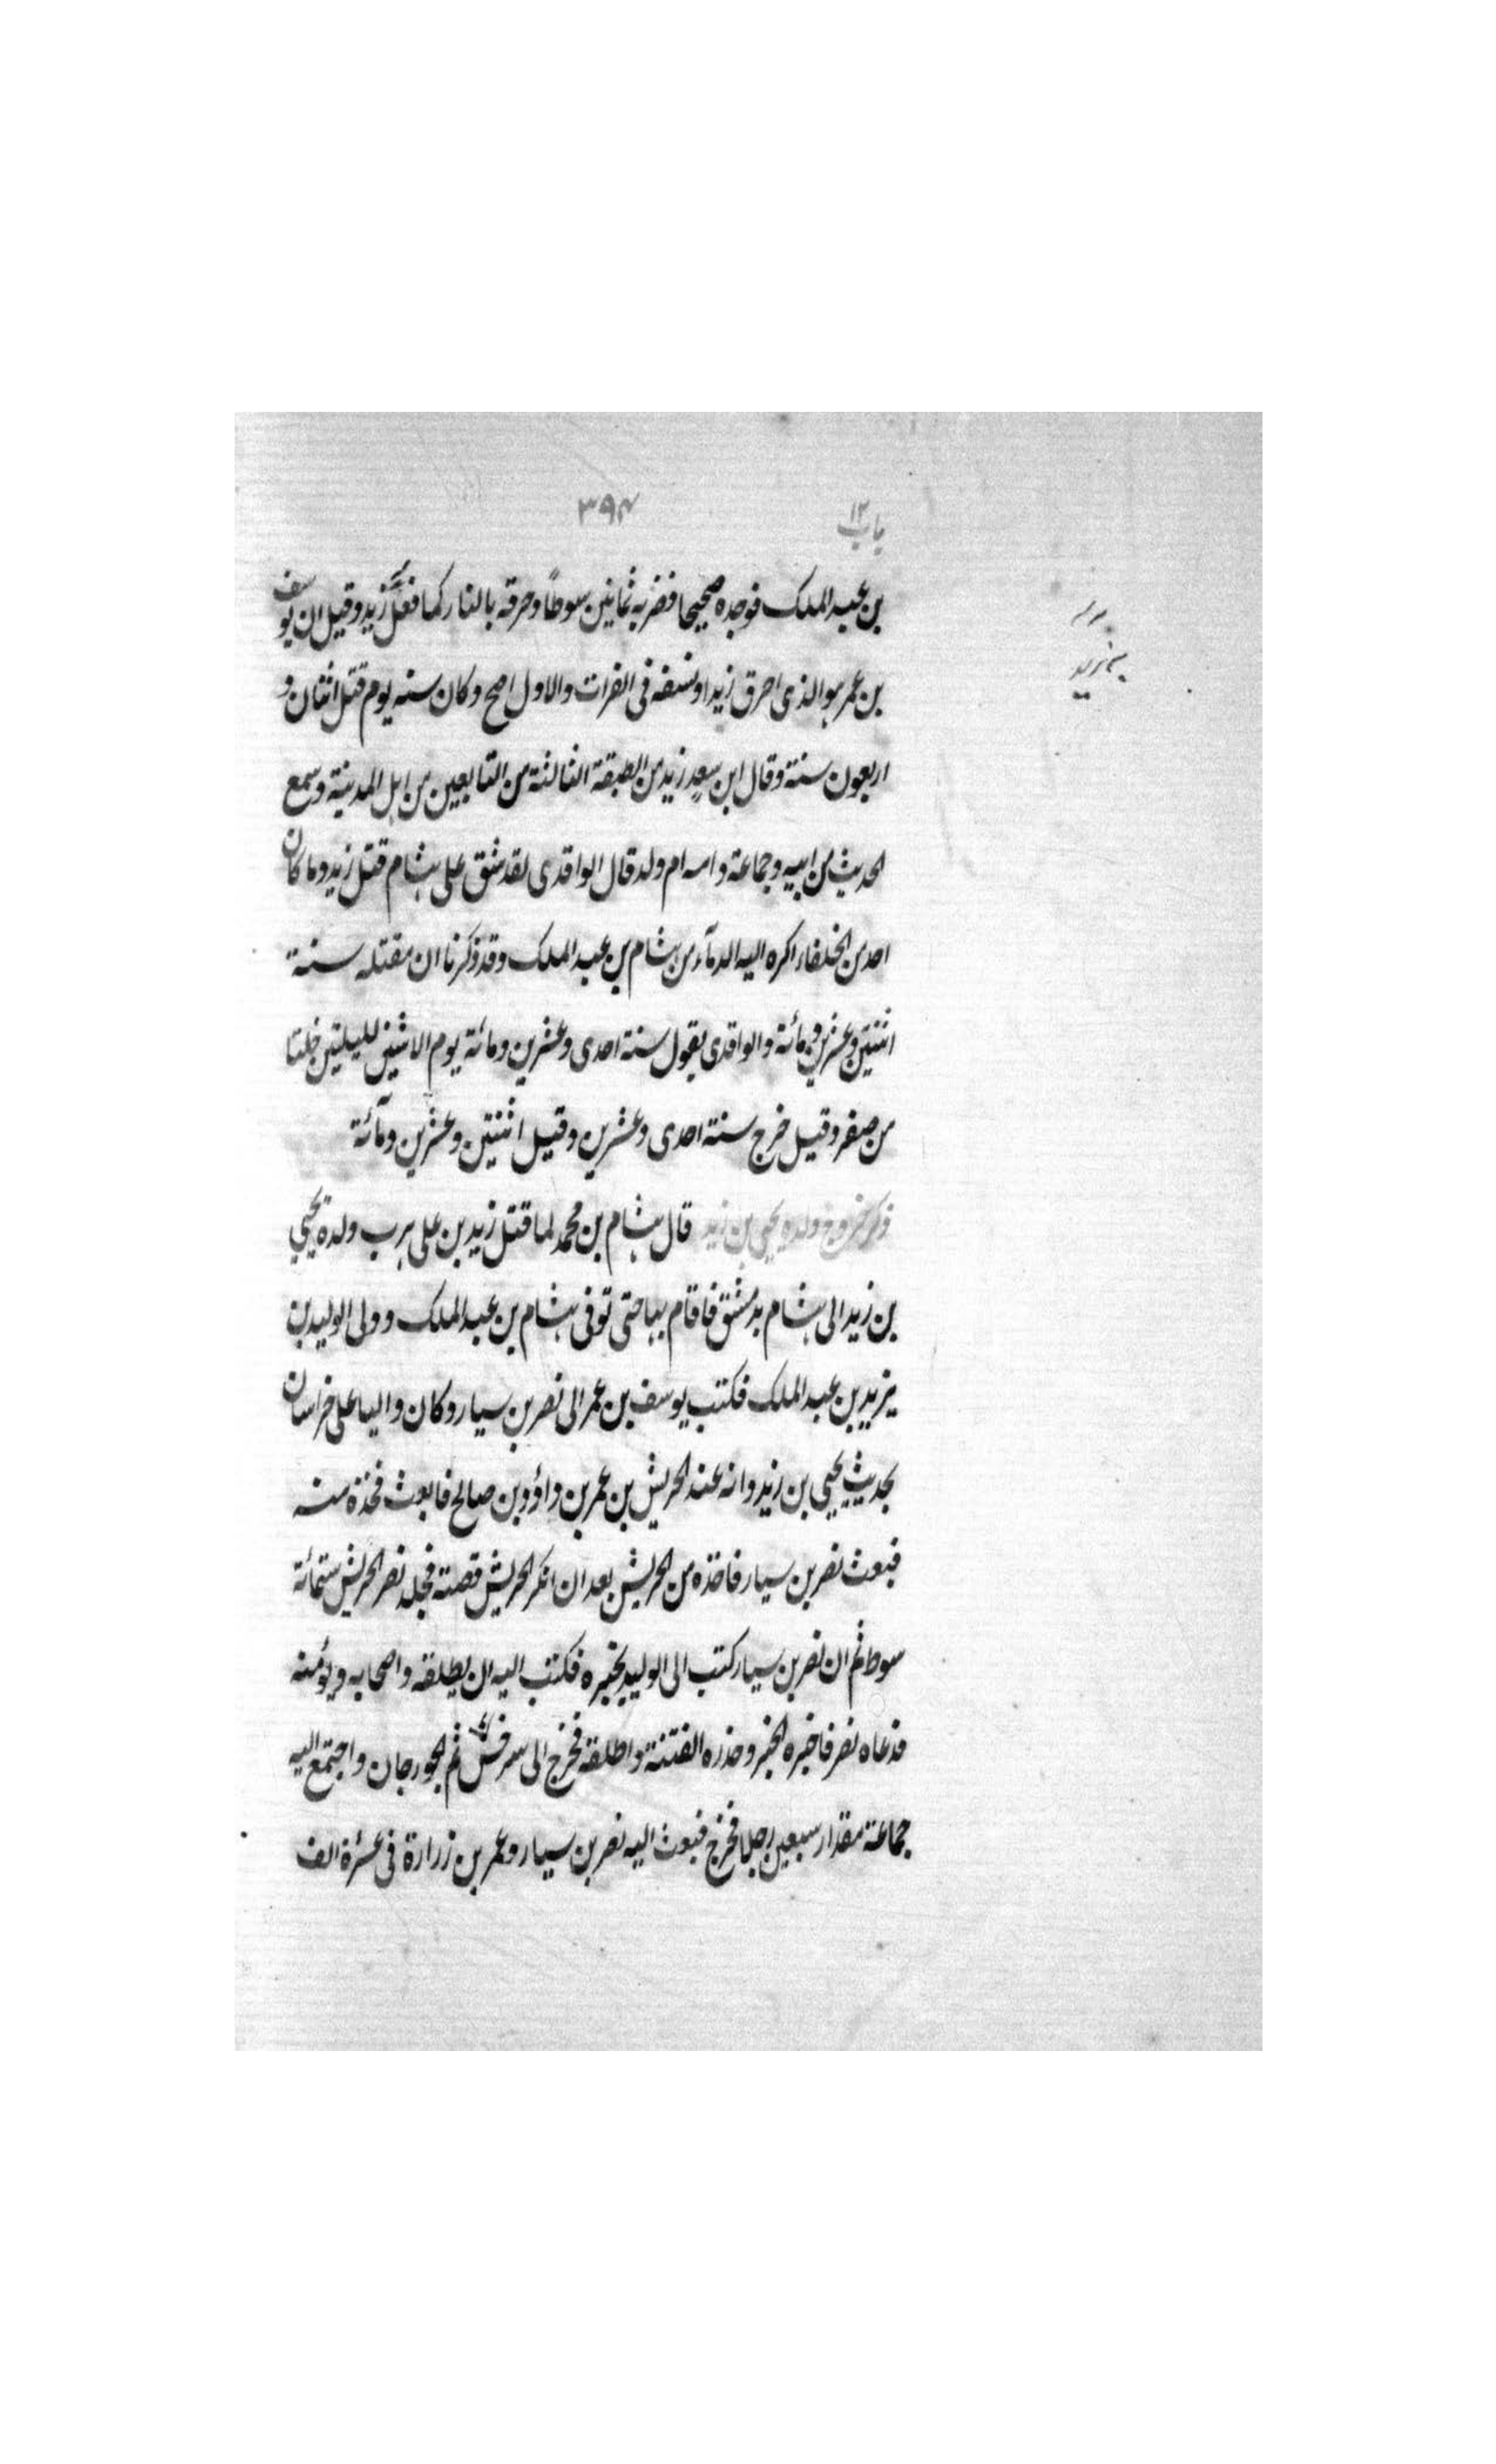 باب ١٢ ٣٩٤
بن عبد الملك فوجده صحيحا فضربه ثمانين سوطاً وحرقه بالنار كما فعل بزيد وقيل ان يوسف
بن عمر هو الذى احرق زيدا ونسفه فى الفرات والاول اصح وكان سنه يوم قتل اثنان و
اربعون سنة وقال ابن سعد زيد من الطبقة الثالثة من التابعين من اهل المدينة وسمع
الحديث من ابيه وجماعة وامه ام ولد قال الواقدى لقد شق على هشام قتل زيد وما كان
احد من الخلفاء اكره اليه الدمآء من هشام بن عبد الملك وقد ذكرنا ان مقتله سنة
اثنتين وعشرين ومائة والواقدى يقول سنة احدى وعشرين ومائة يوم الاثنين لليلتين خلتا
من صفر وقيل خرج سنة احدى وعشرين وقيل اثنتين وعشرين ومآئة
ذكر خروج ولده يحيى بن زيد قال هشام بن محمد لما قتل زيد بن على هرب ولده يحيي
بن زيد الى هشام بدمشق فاقام بها حتى توفى هشام بن عبد الملك وولى الوليد بن
يزيد بن عبد الملك فكتب يوسف بن عمر الى نصر بن سيار وكان واليا على خراسان
بحديث يحيي بن زيد وانه عند الحريش بن عمر بن داؤد بن صالح فابعث فخذه منه
فبعث نصر بن سيار فاخذه من الحريش بعد ان انكر الحريش قصته فجلد نصر الحريش ستمائة
سوط ثم ان نصر بن سيار كتب الى الوليد يخبره فكتب اليه ان يطلقه واصحابه ويؤمنه
فدعاه نصر فاخبره الخبر وحذره الفتنة واطلقه فخرج الى سرخس ثم الجورجان واجتمع اليه
جماعة مقدار سبعين رجلا فخرج فبعث اليه نصر بن سيار وعمر بن زرارة فى عشرة الف